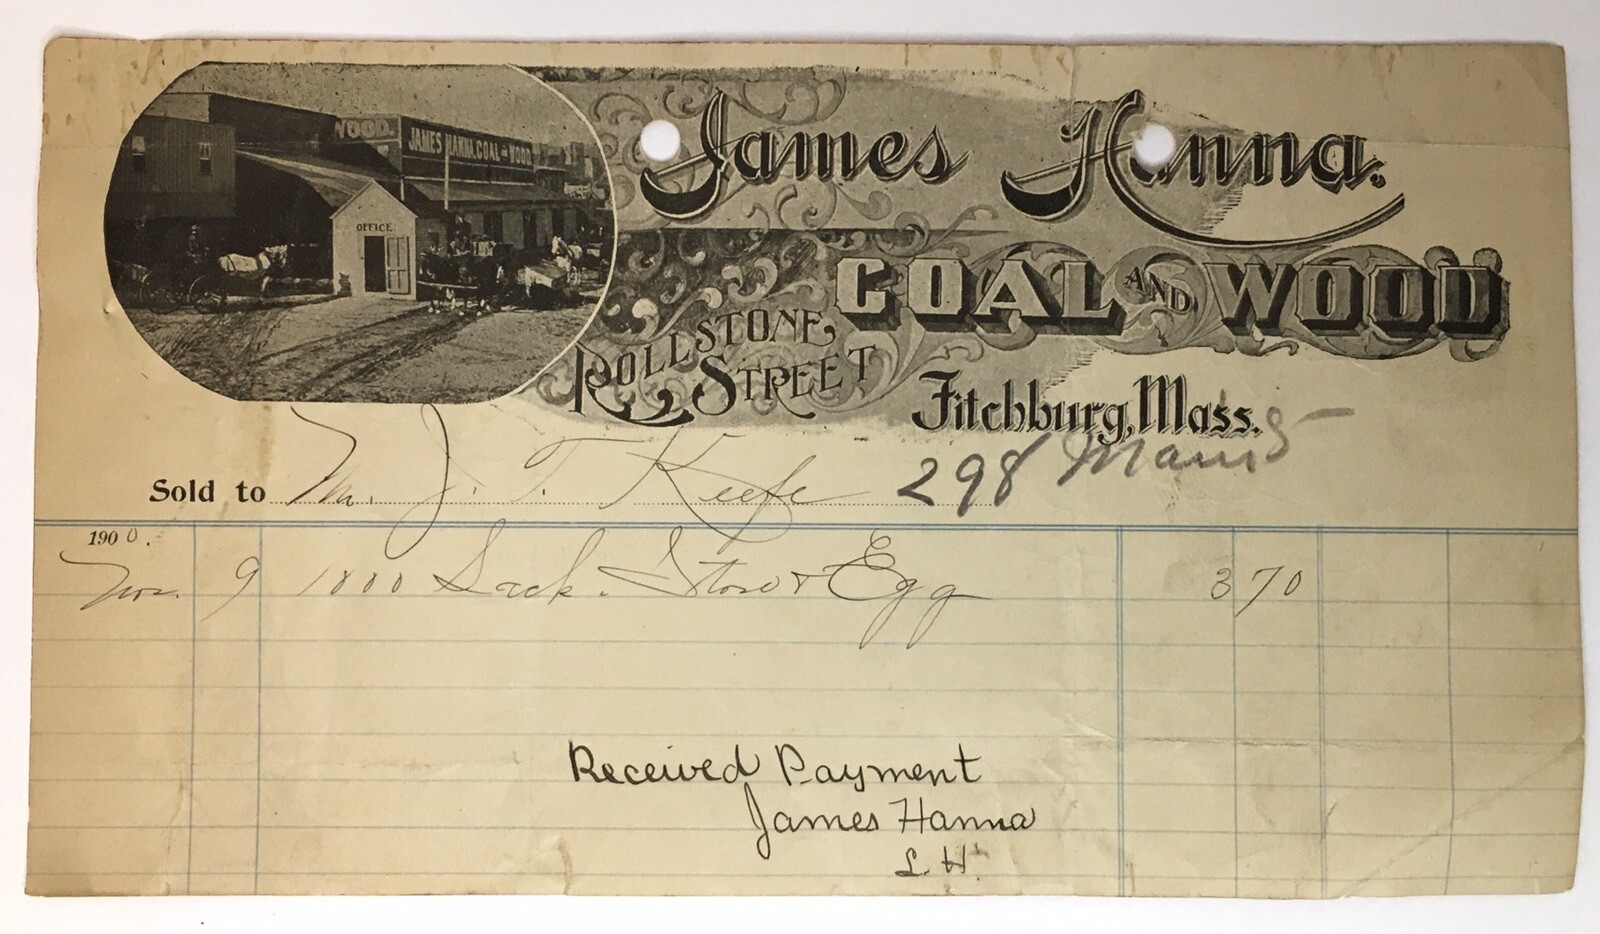 WOOD.
JAMES HANNA, COAL AND WOOD.
OFFICE.
James Hanna.
COAL AND WOOD
ROLLSTONE
STREET
Fitchburg, Mass.
298 Main S
Sold to M. J. T. Keefe
1900.
Nov. 9 1000 Sack. Stove & Egg 3 70
Received Payment
James Hanna
L. H.